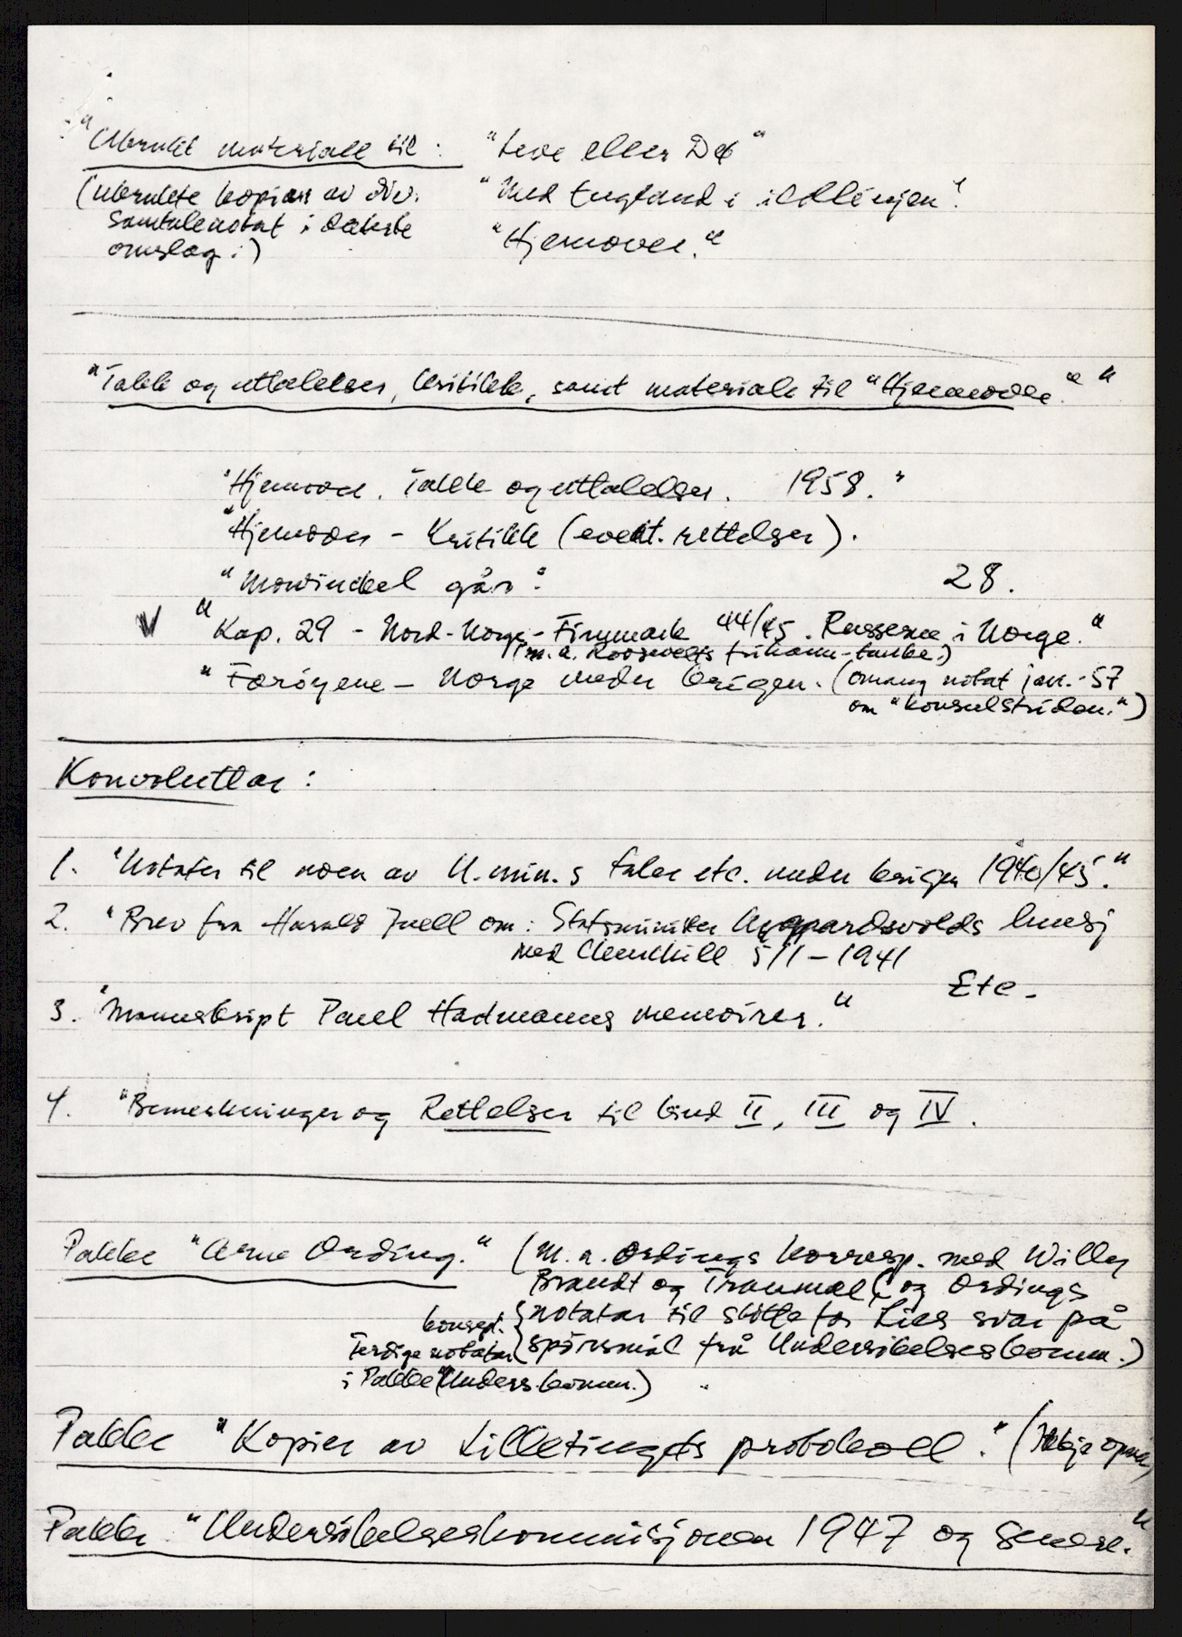 "Ubrukt materiale til: "Leve eller Dø"
(Ubrukte kopier av div. "Med England i ildlinjen"
samtalenotat i dette
omslag:) "Hjemover."
"Takk og uttalelser, kritikk, samt materiale til "Hjemover.""
"Hjemover. Takk og uttalelser. 1958."
"Hjemover - Kritikk (event. rettelser).
"Mowinckel går": 28.
V "Kap. 29 - Nord-Norge - Finnmark 44/45. Russerne i Norge."
(m.a. Roosevelts frihavn-tanke)
"Færøyene - Norge under krigen. (Omang notat jan.-57
om "konsulstriden.")
Konvolutter:
1. "Notater til noen av U.min.s taler etc. under krigen 1940/45."
2. "Brev fra Harald Juell om: Statsminister Nygaardsvolds lunsj
med Churchill 5/1-1941
Etc.
3. "Manuskript Poul Hartmanns memoirer."
4. "Bemerkninger og Rettelser til bind II, III og IV.
Pakke "Arne Ording." (M.a. Ordings korresp. med Willy
Brandt og Tranmæl (og Ordings
konsept. notatar til støtte for Lies svar på
Ferdige notatar spörsmål frå Undersökelseskomm.)
i Pakke "Unders.komm.)
Pakke "Kopier av Lilletingets protokoll." (Ikkje
Pakke "Undersökelseskommisjonen 1947 og senere."